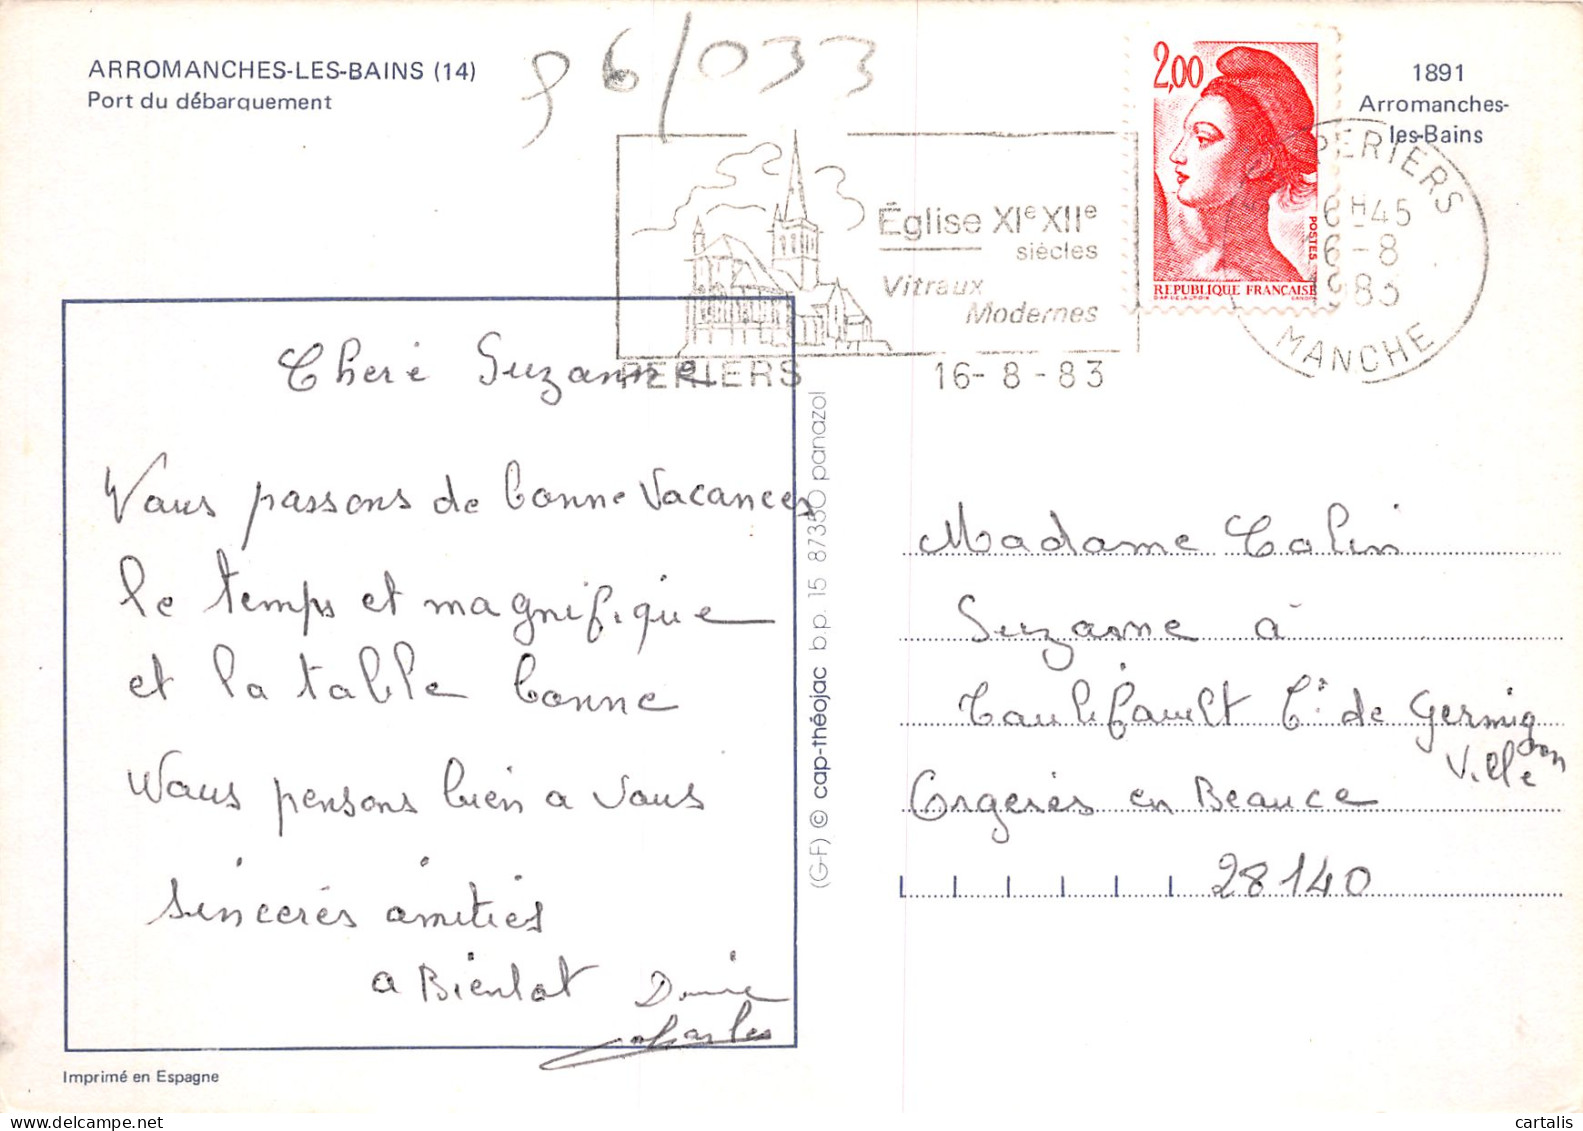 ARROMANCHES-LES-BAINS (14)
Port du débarquement
96/033
1891
Arromanches-
les-Bains
2,00
POSTES
REPUBLIQUE FRANÇAISE
Église XIe XIIe
siècles
Vitraux
Modernes
PERIERS
16-8-83
PERIERS
6H45
6-8
MANCHE
Cheré Suzanne
Nous passons de bonne vacances
le temps et magnifique
et la table bonne
Nous pensons bien a vous
sincerés amitiés
a Bientot Denise
Charles
(G-F) © cap-théojac b.p. 15 87350 panazol
Madame Colin
Suzanne à
de Germignon
Ville
Orgerés en Beauce
28140
Imprimé en Espagne
cartalis